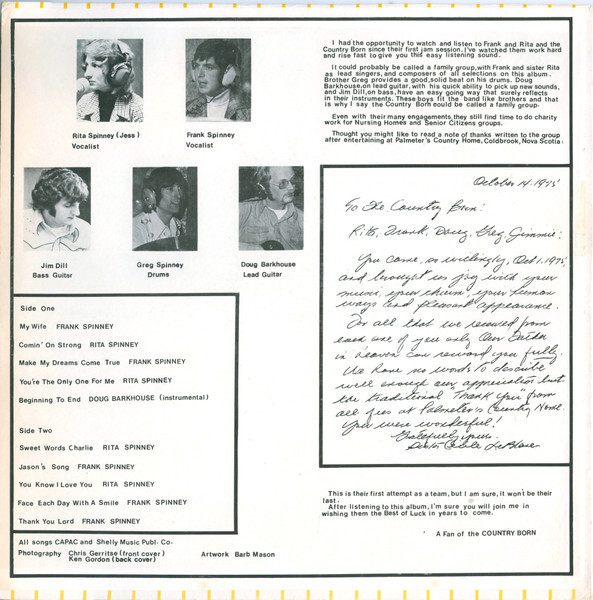 Rita Spinney (Jess)
Vocalist
Frank Spinney
Vocalist
Jim Dill
Bass Guitar
Greg Spinney
Drums
Doug Barkhouse
Lead Guitar
Side One
My Wife FRANK SPINNEY
Comin' On Strong RITA SPINNEY
Make My Dreams Come True FRANK SPINNEY
You're The Only One For Me RITA SPINNEY
Beginning To End DOUG BARKHOUSE (instrumental)
Side Two
Sweet Words Charlie RITA SPINNEY
Jason's Song FRANK SPINNEY
You Know I Love You RITA SPINNEY
Face Each Day With A Smile FRANK SPINNEY
Thank You Lord FRANK SPINNEY
All songs CAPAC and Shelly Music Publ. Co.
Photography Chris Gerritse (front cover)
Ken Gordon (back cover)
Artwork Barb Mason
I had the opportunity to watch and listen to Frank and Rita and the
Country Born since their first jam session. I've watched them work hard
and rise fast to give you this easy listening sound.
It could probably be called a family group, with Frank and sister Rita
as lead singers, and composers of all selections on this album.
Brother Greg provides a good, solid beat on his drums. Doug
Barkhouse, on lead guitar, with his quick ability to pick up new sounds,
and Jim Dill, on bass, have an easy going way that surely reflects
in their instruments. These boys fit the band like brothers and that
is why I say the Country Born could be called a family group.
Even with their many engagements, they still find time to do charity
work for Nursing Homes and Senior Citizens groups.
Thought you might like to read a note of thanks written to the group
after entertaining at Palmeter's Country Home, Coldbrook, Nova Scotia:
October 14. 1975
To The Country Born:
Rita, Frank, Doug, Greg, Jimmie:
You came, so willingly, Oct. 1, 1975
and brought us joy with your
music, your charm, your human
ways and pleasant appearance.
For all that we received from
each one of you only Our Father
in heaven can reward you fully.
We have no words to describe
well enough our appreciation but
the traditional "Thank You" from
all of us at Palmeter's Country Home.
You were wonderful!
Gratefully yours,
LeBlanc
This is their first attempt as a team, but I am sure, it won't be their
last.
After listening to this album, I'm sure you will join me in
wishing them the Best of Luck in years to come.
A Fan of the COUNTRY BORN